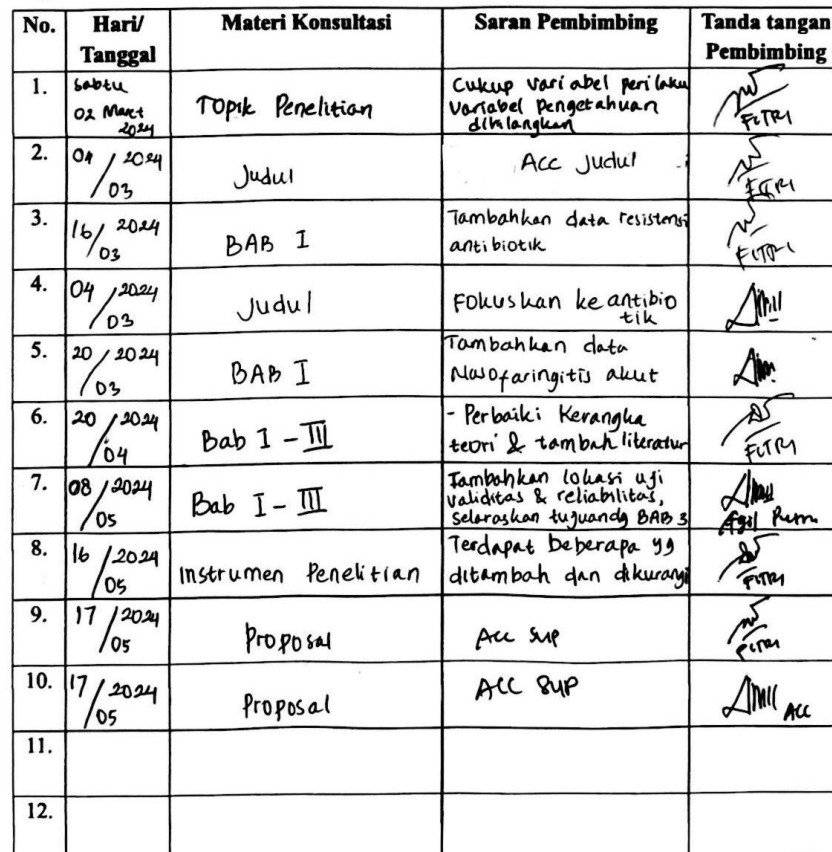 No. Hari/ Tanggal Materi Konsultasi Saran Pembimbing Tanda tangan Pembimbing
1. Sabtu 02 Maret 2024 Topik Penelitian Cukup variabel perilaku variabel pengetahuan dihilangkan FITRI
2. 04/03 2024 Judul Acc Judul FITRI
3. 16/03 2024 BAB I Tambahkan data resistensi antibiotik FITRI
4. 04/03 2024 Judul Fokuskan ke antibiotik
5. 20/03 2024 BAB I Tambahkan data Nasofaringitis akut
6. 20/04 2024 Bab I - III - Perbaiki Kerangka teori & tambah literatur FITRI
7. 08/05 2024 Bab I - III Tambahkan lokasi uji validitas & reliabilitas, selaraskan tujuan dg BAB 3
8. 16/05 2024 Instrumen Penelitian Terdapat beberapa yg ditambah dan dikurangi FITRI
9. 17/05 2024 Proposal Acc SUP FITRI
10. 17/05 2024 Proposal ACC SUP ACC
11.
12.